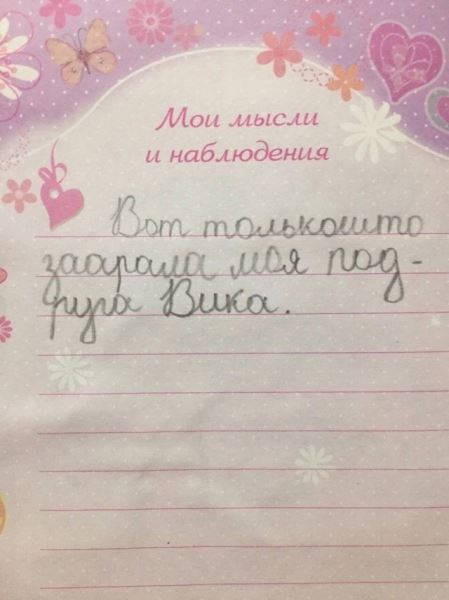 Мои мысли
и наблюдения
Вот толькошто
заарала моя под-
руга Вика.